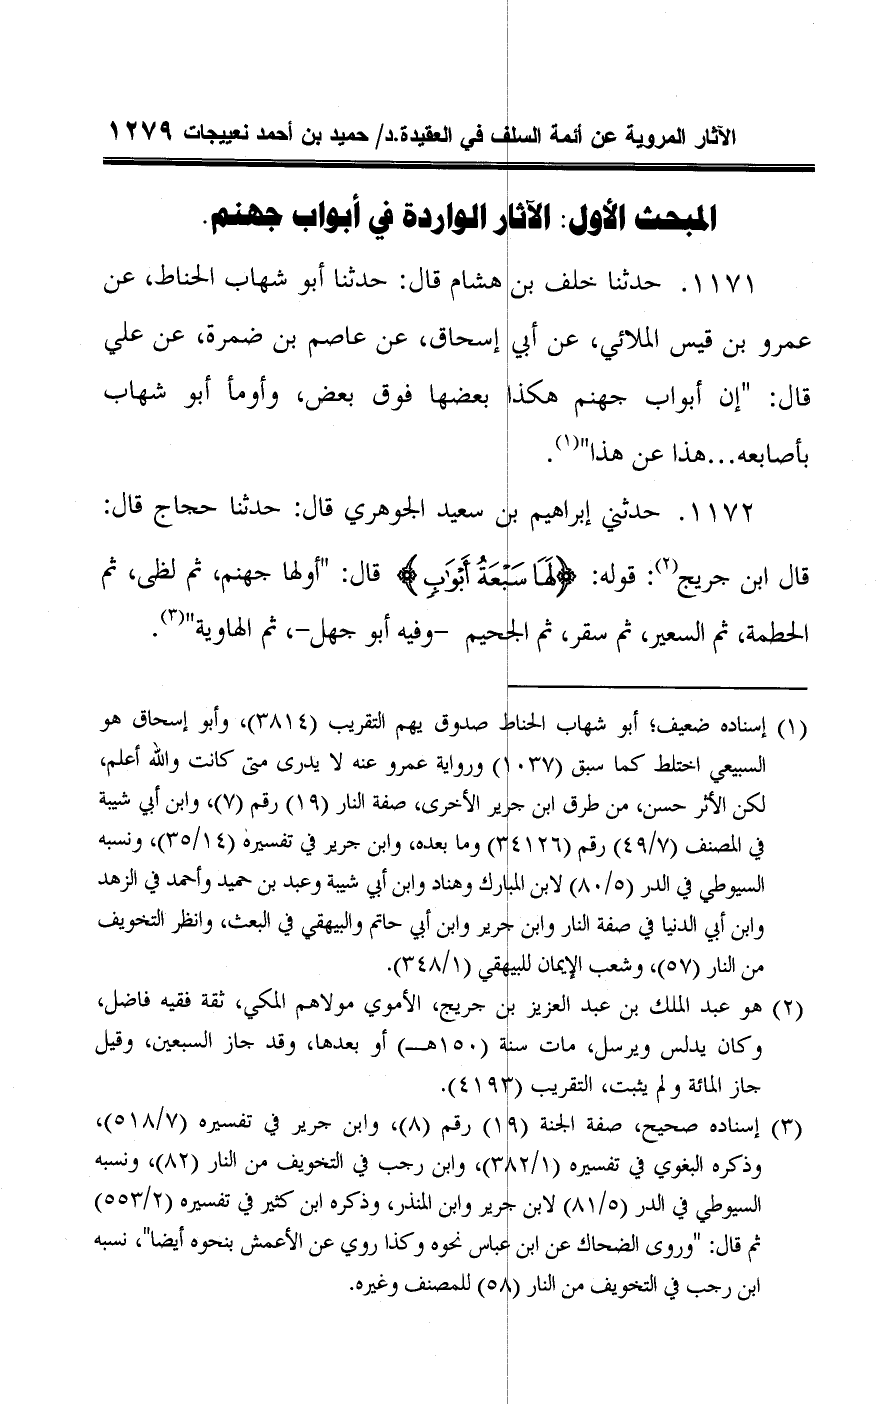 الآثار المروية عن أئمة السلف في العقيدة.د/ حميد بن أحمد نعييجات ١٢٧٩
المبحث الأول: الآثار الواردة في أبواب جهنم.
١١٧١. حدثنا خلف بن هشام قال: حدثنا أبو شهاب الحناط، عن
عمرو بن قيس الملائي، عن أبي إسحاق، عن عاصم بن ضمرة، عن علي
قال: "إن أبواب جهنم هكذا بعضها فوق بعض، وأومأ أبو شهاب
بأصابعه...هذا عن هذا"(١).
١١٧٢. حدثني إبراهيم بن سعيد الجوهري قال: حدثنا حجاج قال:
قال ابن جريج(٢): قوله: ﴿لَهَا سَبْعَةُ أَبْوَابٍ﴾ قال: "أولها جهنم، ثم لظى، ثم
الحطمة، ثم السعير، ثم سقر، ثم الجحيم -وفيه أبو جهل-، ثم الهاوية"(٣).
(١) إسناده ضعيف؛ أبو شهاب الحناط صدوق يهم التقريب (٣٨١٤)، وأبو إسحاق هو
السبيعي اختلط كما سبق (١٠٣٧) ورواية عمرو عنه لا يدرى متى كانت والله أعلم،
لكن الأثر حسن، من طرق ابن جرير الأخرى، صفة النار (١٩) رقم (٧)، وابن أبي شيبة
في المصنف (٤٩/٧) رقم (٣٤١٢٦) وما بعده، وابن جرير في تفسيره (٣٥/١٤)، ونسبه
السيوطي في الدر (٨٠/٥) لابن المبارك وهناد وابن أبي شيبة وعبد بن حميد وأحمد في الزهد
وابن أبي الدنيا في صفة النار وابن جرير وابن أبي حاتم والبيهقي في البعث، وانظر التخويف
من النار (٥٧)، وشعب الإيمان للبيهقي (٣٤٨/١).
(٢) هو عبد الملك بن عبد العزيز بن جريج، الأموي مولاهم المكي، ثقة فقيه فاضل،
وكان يدلس ويرسل، مات سنة (١٥٠هـ) أو بعدها، وقد جاز السبعين، وقيل
جاز المائة و لم يثبت، التقريب (٤١٩٣).
(٣) إسناده صحيح، صفة الجنة (١٩) رقم (٨)، وابن جرير في تفسيره (٥١٨/٧)،
وذكره البغوي في تفسيره (٣٨٢/١)، وابن رجب في التخويف من النار (٨٢)، ونسبه
السيوطي في الدر (٨١/٥) لابن جرير وابن المنذر، وذكره ابن كثير في تفسيره (٥٥٣/٢)
ثم قال: "وروى الضحاك عن ابن عباس نحوه وكذا روي عن الأعمش بنحوه أيضا"، نسبه
ابن رجب في التخويف من النار (٥٨) للمصنف وغيره.